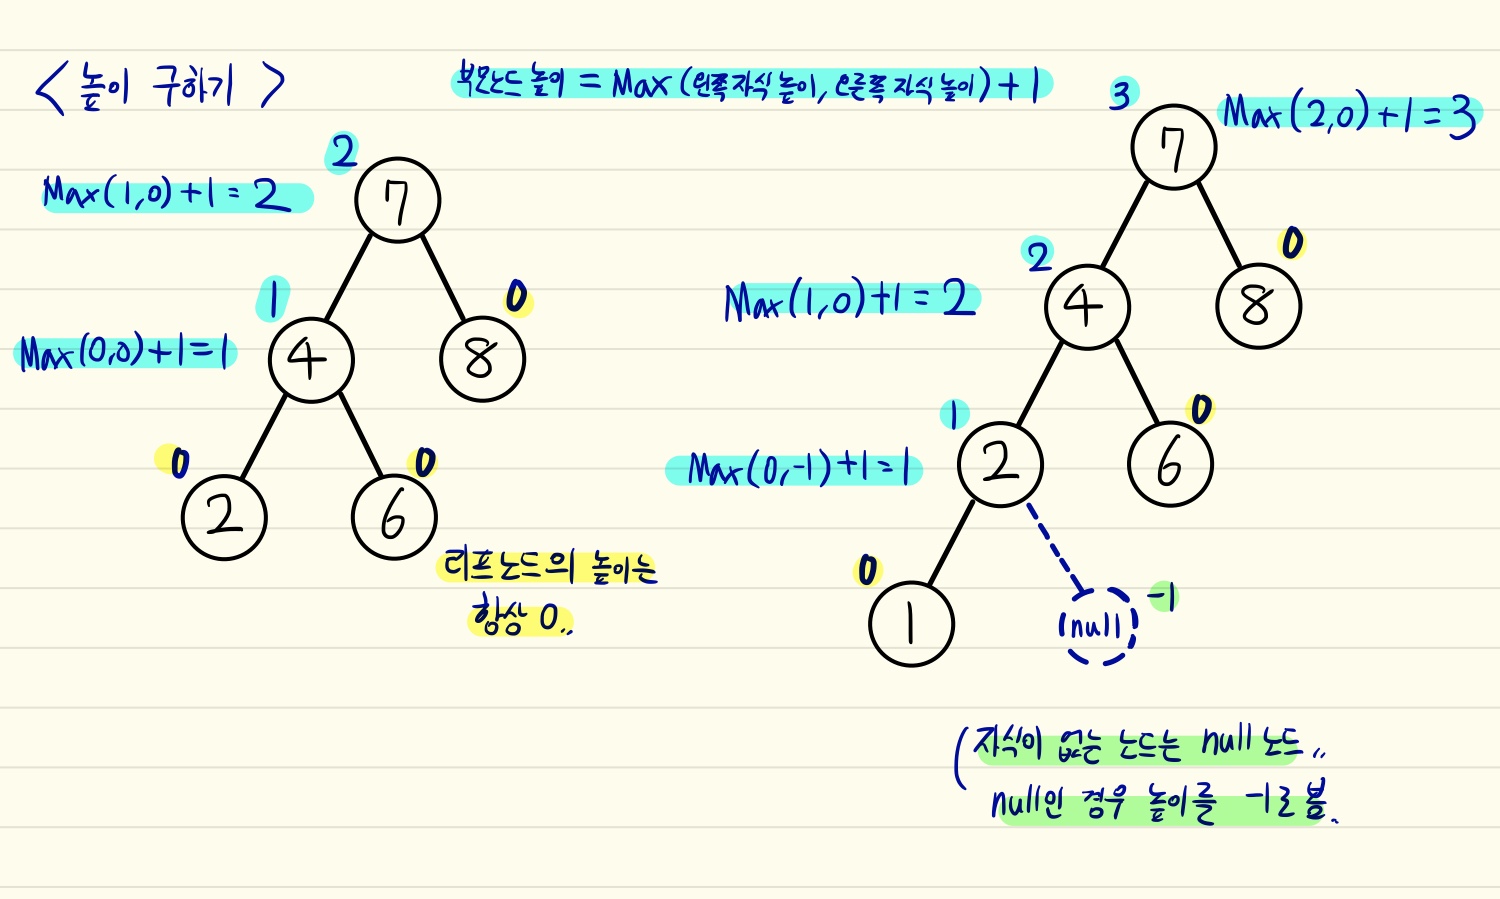 < 높이 구하기 >
부모노드 높이 = Max (왼쪽 자식 높이, 오른쪽 자식 높이) + 1
2
7
Max(1,0)+1=2
1
0
Max(0,0)+1=1
4
8
0
0
2
6
리프노드의 높이는
항상 0..
3
7
Max(2,0)+1=3
2
0
Max(1,0)+1=2
4
8
1
0
Max(0,-1)+1=1
2
6
0
-1
1
null
(자식이 없는 노드는 null 노드..
null인 경우 높이를 -1로 봄.